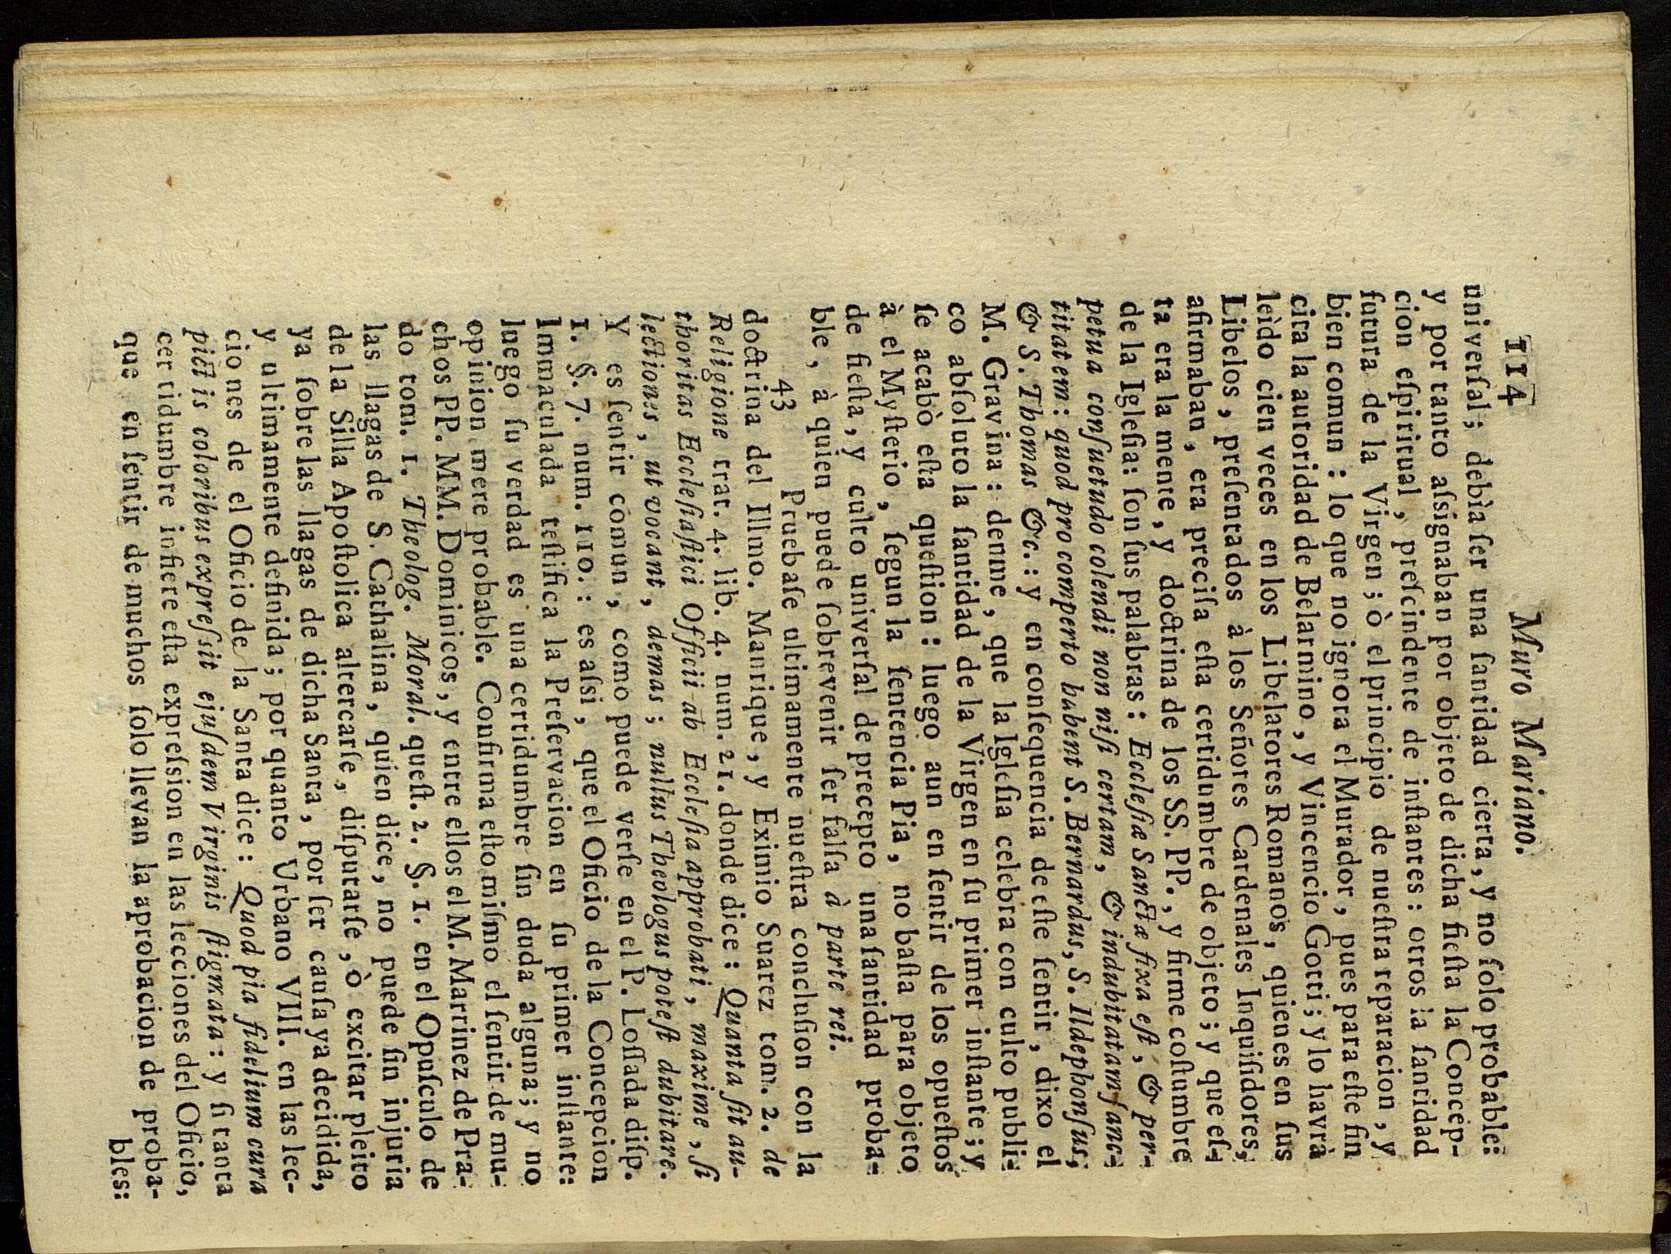 114 Muro Mariano.
univerſal; debìa ſer una ſantidad cierta, y no ſolo probable:
y por tanto aſsignaban por objeto de dicha fieſta la Concep-
cion eſpiritual, preſcindente de inſtantes: otros la ſantidad
futura de la Virgen; ò el principio de nueſtra reparacion, y
bien comun: lo que no ignora el Murador, pues para eſte fin
cita la autoridad de Belarmino, y Vincencio Gotti; y lo havrà
leìdo cien veces en los Libelatores Romanos, quienes en ſus
Libelos, preſentados à los Señores Cardenales Inquiſidores,
afirmaban, era preciſa eſta certidumbre de objeto; y que eſ-
ta era la mente, y doctrina de los SS. PP., y firme coſtumbre
de la Igleſia: ſon ſus palabras: Eccleſiæ Sanctæ fixa eſt, & per-
petua conſuetudo colendi non niſi certam, & indubitatam ſanc-
titatem: quod pro comperto habent S. Bernardus, S. Ildephonſus,
& S. Thomas &c.: y en conſequencia de eſte ſentir, dixo el
M. Gravina: denme, que la Igleſia celebra con culto publi-
co abſoluto la ſantidad de la Virgen en ſu primer inſtante; y
ſe acabò eſta queſtion: luego aun en ſentir de los opueſtos
à el Myſterio, ſegun la ſentencia Pia, no baſta para objeto
de fieſta, y culto univerſal de precepto una ſantidad proba-
ble, à quien puede ſobrevenir ſer falſa à parte rei.
43 Pruebaſe ultimamente nueſtra concluſion con la
doctrina del Illmo. Manrique, y Eximio Suarez tom. 2. de
Religione trat. 4. lib. 4. num. 21. donde dice: Quanta ſit au-
thoritas Eccleſiaſtici Officii ab Eccleſia approbati, maxime, ſi
lectiones, ut vocant, demas; nullus Theologus poteſt dubitare.
Y es ſentir comun, como puede verſe en el P. Loſſada diſp.
1. §. 7. num. 110.: es aſsi, que el Oficio de la Concepcion
Immaculada teſtifica la Preſervacion en ſu primer inſtante:
luego ſu verdad es una certidumbre ſin duda alguna; y no
opinion mere probable. Confirma eſto miſmo el ſentir de mu-
chos PP. MM. Dominicos, y entre ellos el M. Martinez de Pra-
do tom. 1. Theolog. Moral. queſt. 2. §. 1. en el Opuſculo de
las llagas de S. Cathalina, quien dice, no puede ſin injuria
de la Silla Apoſtolica altercarſe, diſputarſe, ò excitar pleito
ya ſobre las llagas de dicha Santa, por ſer cauſa ya decidida,
y ultimamente definida; por quanto Urbano VIII. en las lec-
ciones de el Oficio de la Santa dice: Quod pia fidelium cura
pictis coloribus expreſsit ejuſdem Virginis ſtigmata: y ſi tanta
certidumbre infiere eſta expreſsion en las lecciones del Oficio,
que en ſentir de muchos ſolo llevan la aprobacion de proba-
bles: